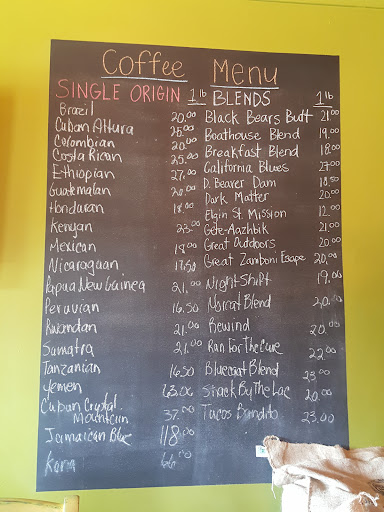 Coffee Menu
SINGLE ORIGIN 1 lb
Brazil 20.00
Cuban Altura 25.00
Colombian 20.00
Costa Rican 25.00
Ethiopian 27.00
Guatemalan 20.00
Honduran 18.00
Kenyan 23.00
Mexican 18.00
Nicaraguan 17.50
Papua New Guinea 21.00
Peruvian 16.50
Rwandan 21.00
Sumatra 21.00
Tanzanian 16.50
Yemen 63.00
Cuban Crystal
Mountain 37.00
Jamaican Blue 118.00
Kona 66.00
BLENDS 1 lb
Black Bears Butt 21.00
Boathouse Blend 19.00
Breakfast Blend 18.00
California Blues 27.00
D. Beaver Dam 18.50
Dark Matter 20.00
Elgin St. Mission 12.00
Gete-Aazhbik 21.00
Great Outdoors 20.00
Great Zamboni Escape 20.00
Night Shift 19.00
Blend 20.00
Rewind 20.00
Ran For The Cure 22.00
Bluecoat Blend 23.00
Shack By The Lac 20.00
Tacos Bandito 23.00